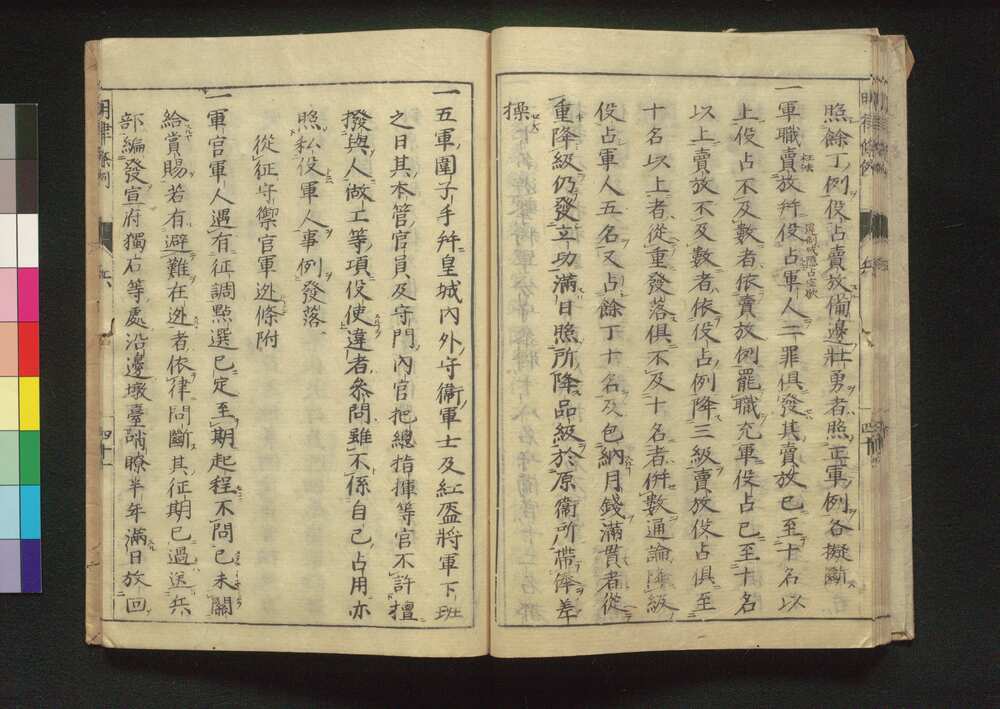 照餘丁例役占賣放備邊壯勇者照正軍例各擬斷
一軍職賣放幷役占軍人二罪俱發其賣放已至十名以
上役占不及數者依賣放例罷職充軍役占已至十名
以上賣放不及數者依役占例降三級賣放役占俱至
十名以上者從重發落俱不及十名者倂數通論降級
役占軍人五名又占餘丁十名及包納月錢滿貫者從
重降級仍發立功滿日照所降品級於原衞所帶俸差
操
明律條例
兵
四十一
一五軍圍子手幷皇城內外守衞軍士及紅盔將軍下班
之日其本管官員及守門內官把總指揮等官不許擅
撥與人做工等項役使違者叅問雖不係自己占用亦
照私役軍人事例發落
從征守禦官軍逃條附
一軍官軍人遇有征調點選已定至期起程不問已未關
給賞賜若有避難在逃者依律問斷其征期已過送兵
部編發宣府獨石等處沿邊墩臺哨瞭半年滿日放回